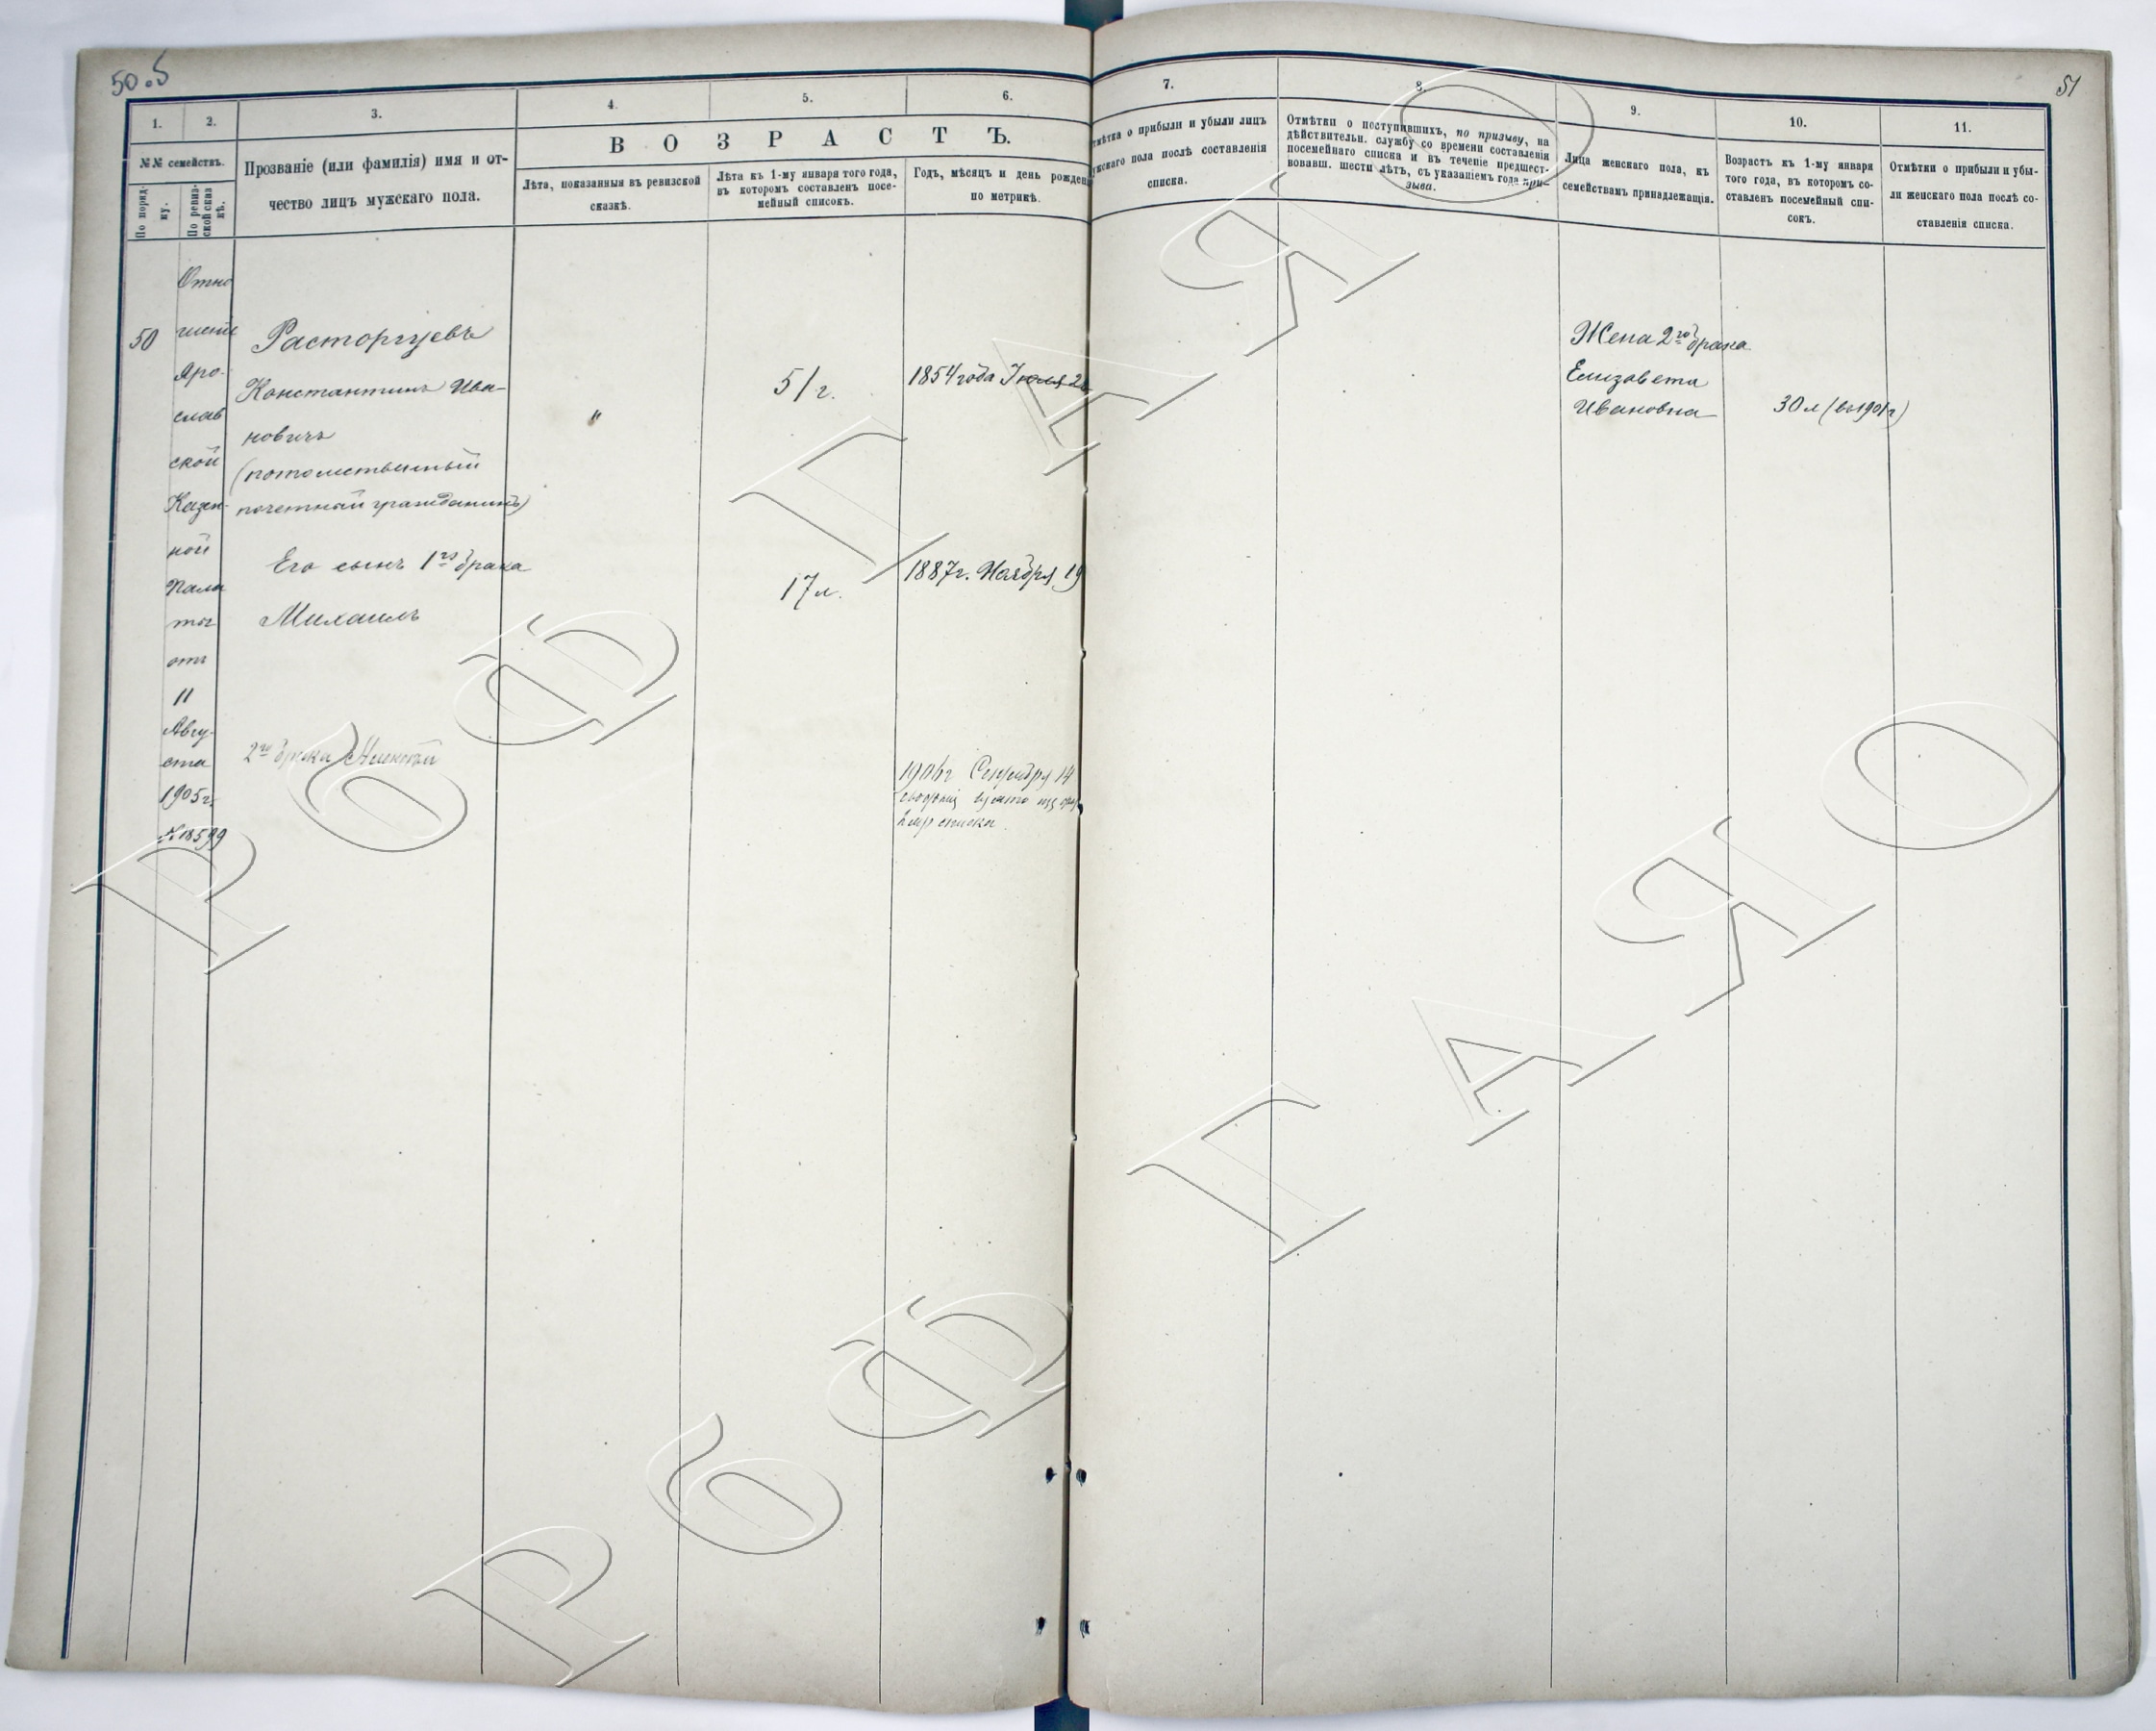 50 об
51
1.
2.
3.
4.
5.
6.
7.
8.
9.
10.
11.
№№ семействъ.
По поряд-
ку.
По ревиз-
ской сказ
кѣ.
Прозваніе (или фамилія) имя и от-
чество лицъ мужскаго пола.
ВОЗРАСТЪ.
Лѣта, показанныя въ ревизской
сказкѣ.
Лѣта къ 1-му января того года,
въ которомъ составленъ посе-
мейный списокъ.
Годъ, мѣсяцъ и день рожден
по метрикѣ.
тмѣтка о прибыли и убыли лицъ
ужескаго пола послѣ составленія
списка.
Отмѣтки о поступившихъ, по призыву, на
дѣйствительн. службу со времени составленія
посемейнаго списка и въ теченіе предшест-
вовавш. шести лѣтъ, съ указаніемъ года при-
зыва.
Лица женскаго пола, къ
семействамъ принадлежащія.
Возрастъ къ 1-му января
того года, въ которомъ со-
ставленъ посемейный спи-
сокъ.
Отмѣтки о прибыли и убы-
ли женскаго пола послѣ со-
ставленія списка.
50
Отно
шеніе
Яро-
слав
ской
Казен-
ной
Пала
ты
отъ
11
Авгу-
ста
1905г.
№18599
Расторгуевъ
Константинъ Ива-
новичъ
(потомственный
почетный гражданинъ)
"
51г.
1854 года Іюля 2
Его сынъ 1го брака
Михаилъ
17л.
1887г. Ноября 19
2го брака Николай
1906г. Сентября 14
взято из
списка.
Жена 2го брака
Елизавета
Ивановна
30л (въ 1901г)
РФ ГАЯО
РФ ГАЯО